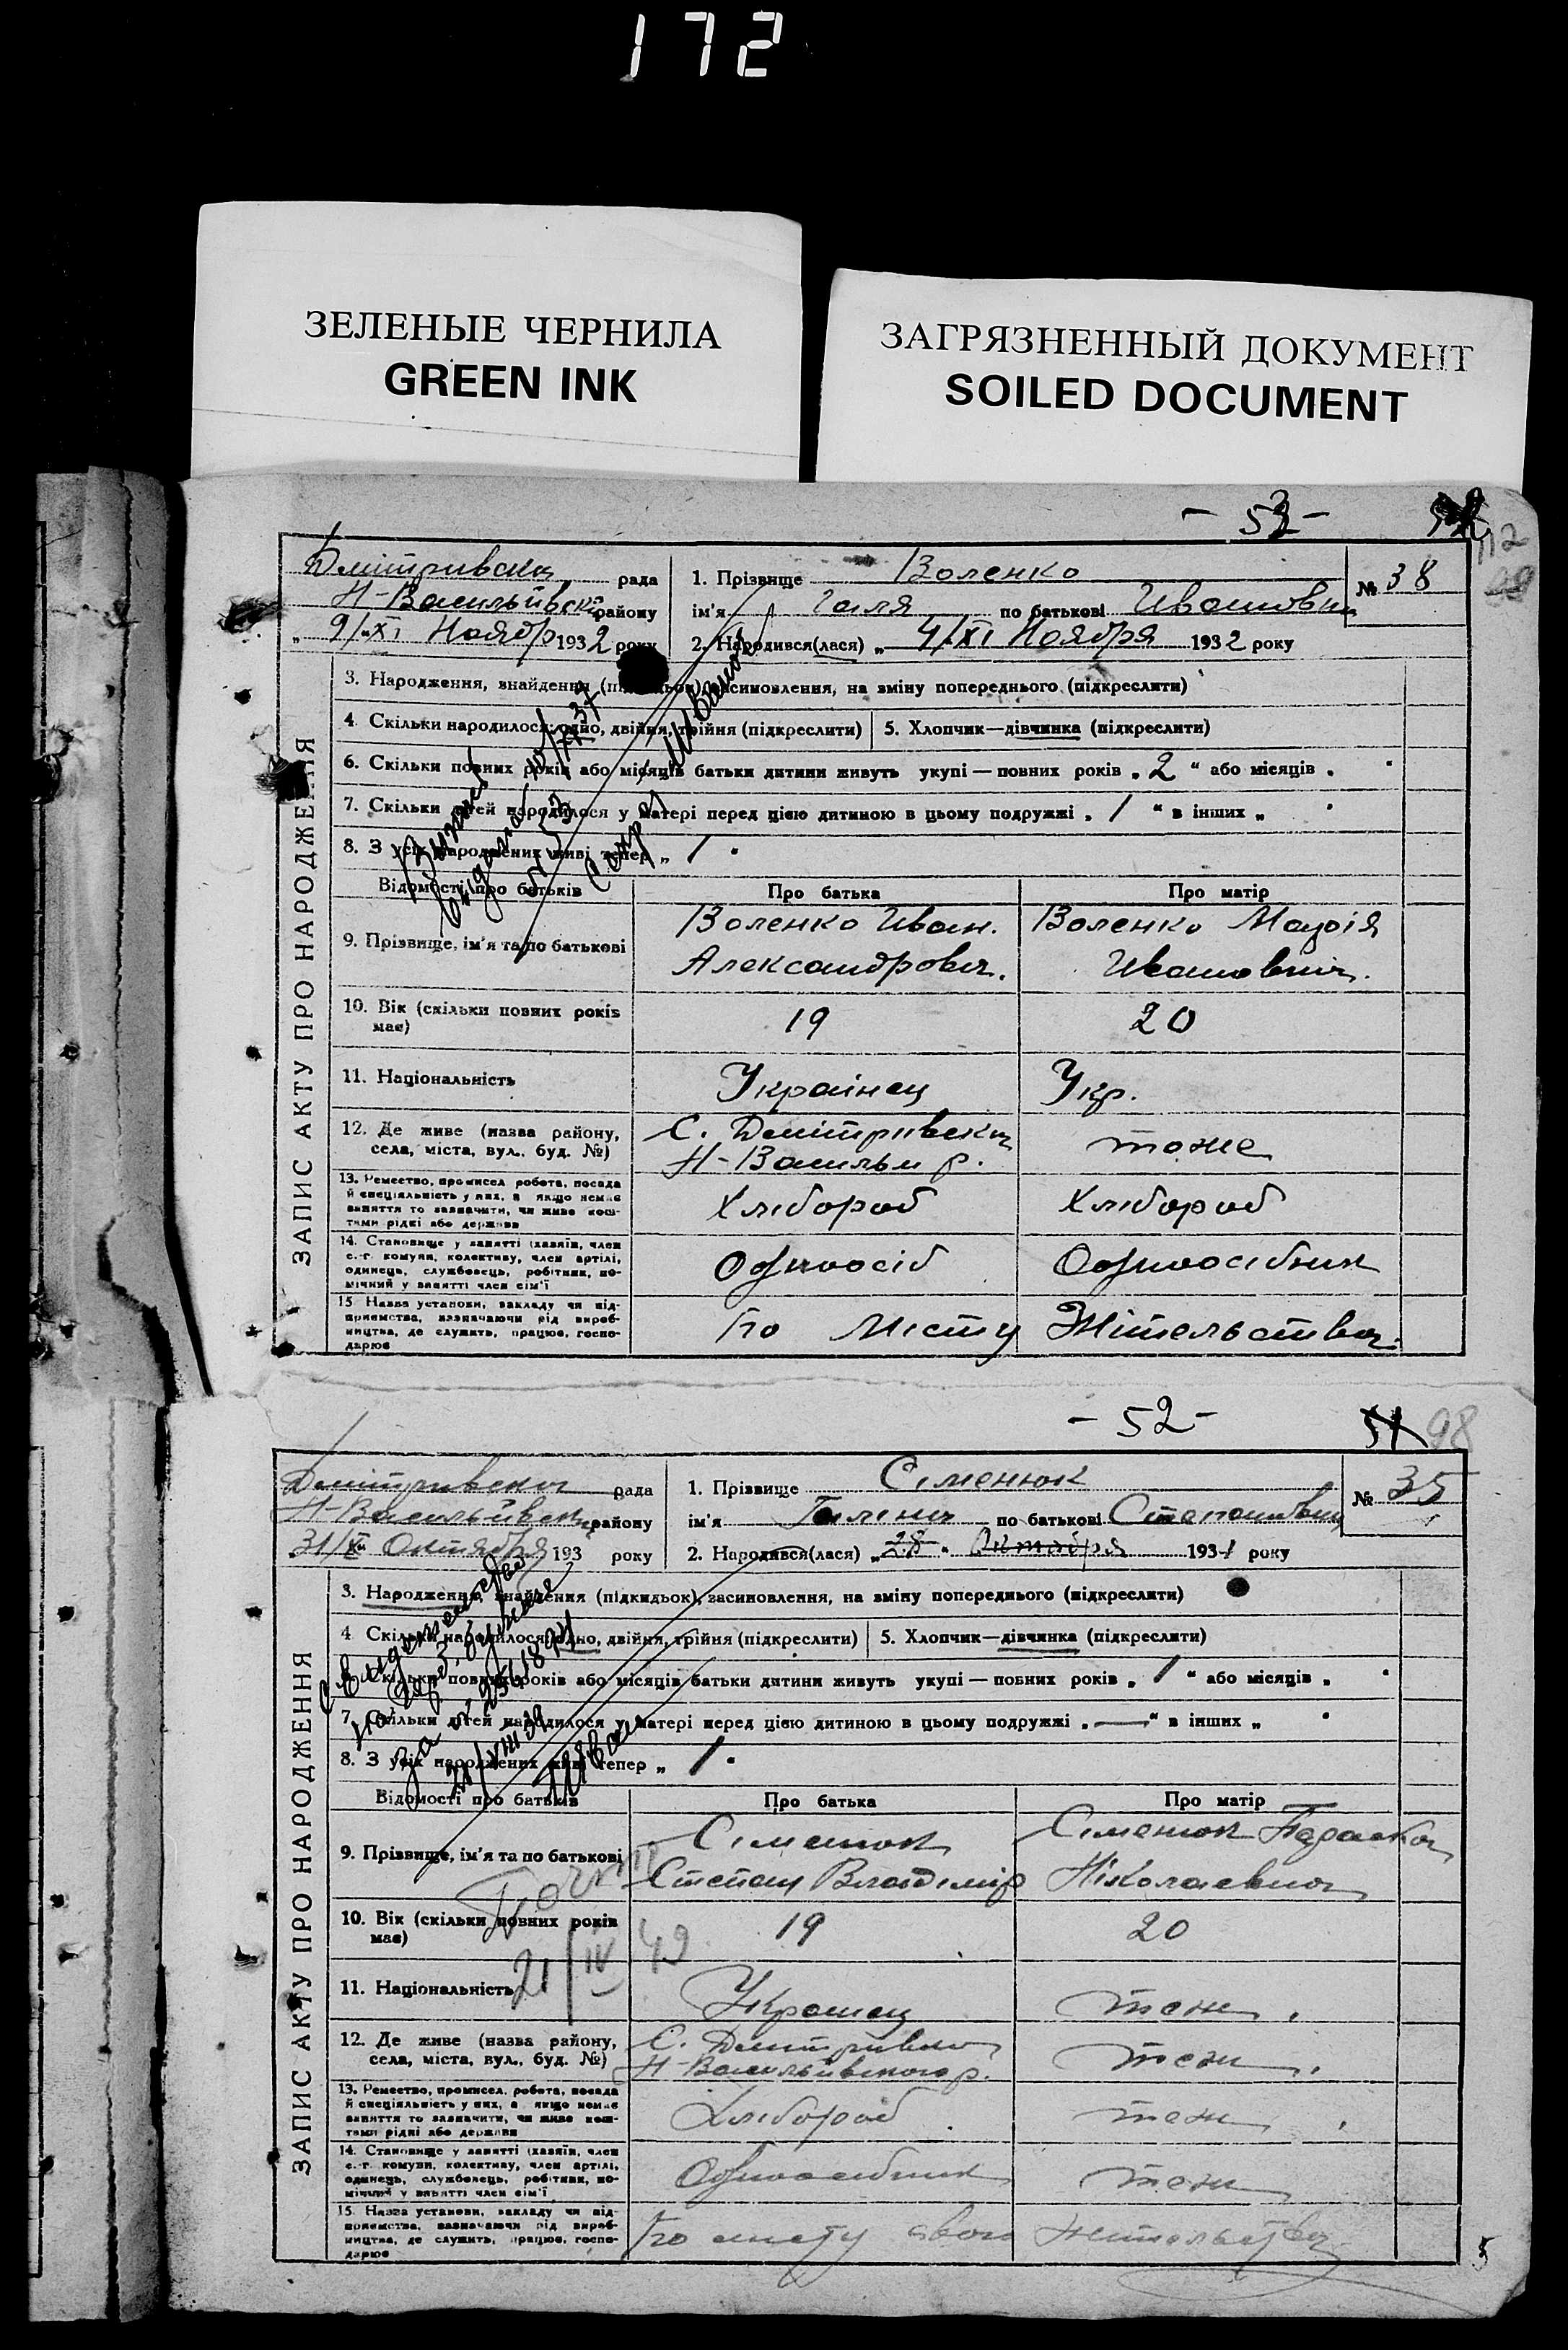 172
ЗЕЛЕНЫЕ ЧЕРНИЛА
GREEN INK
ЗАГРЯЗНЕННЫЙ ДОКУМЕНТ
SOILED DOCUMENT
- 53 -
112
ЗАПИС АКТУ ПРО НАРОДЖЕННЯ
Дмітривська рада
Н-Васильівськ району
„ 9/XI Ноябр 1932 року
1. Прізвище Воленко
№ 38
ім'я Галя по батькові Ивановна
2. Народився(лася) „ 4/XI Ноября 1932 року
3. Народження, знайдення засиновлення, на зміну попереднього (підкреслити)
4. Скільки народилося: одно, двійня, трійня (підкреслити)
5. Хлопчик—дівчинка (підкреслити)
6. Скільки повних років або місяців батьки дитини живуть укупі — повних років „ 2 “ або місяців „
7. Скільки дітей народилося у матері перед цією дитиною в цьому подружжі „ 1 “ в інших „
8. З усіх народжених живі тепер „ 1
Відомості про батьків Про батька Про матір
9. Прізвище, ім'я та по батькові
Воленко Иван.
Александрович.
Воленко Марія
Ивановна.
10. Вік (скільки повних років має) 19 20
11. Національність Украінец Укр.
12. Де живе (назва району, села, міста, вул., буд. №)
С. Дмітривська
Н-Васильи р.
тоже
13. Ремество, промисел, робота, посада
й спеціяльність у них, а якщо немає
заняття то зазначити, чи живе кош-
тами рідні або держави
Хлібороб Хлібороб
14. Становище у занятті (хазяїн, член
с.-г. комуни, колективу, член артілі,
одинець, службовець, робітник, по-
мічний у занятті член сім'ї
Одноосіб Одноосібник
15 Назва установи, закладу чи під-
приємства, зазначаючи рід вироб-
ництва, де служить, працює, госпо-
дарює
По Місту Жітельства.
- 52 -
98
ЗАПИС АКТУ ПРО НАРОДЖЕННЯ
Дмітривська рада
Н-Васильівська району
31/X Октября 193 року
1. Прізвище Сіменюк
№ 35
ім'я по батькові Степановна
2. Народився(лася) „ 28 “ Октября 193 року
3. Народження, знайдення (підкидьок), засиновлення, на зміну попереднього (підкреслити)
4 Скільки народилося: одно, двійня, трійня (підкреслити)
5. Хлопчик—дівчинка (підкреслити)
Скільки повних років або місяців батьки дитини живуть укупі — повних років „ 1 “ або місяців „
7. Скільки дітей народилося у матері перед цією дитиною в цьому подружжі „ — “ в інших „
8. З усіх народжених живі тепер „ 1
Відомості про батьків Про батька Про матір
9. Прізвище, ім'я та по батькові
Сіменюк
Степан Владімір
Сіменюк Параска
Ніколаевна
10. Вік (скільки повних років має) 19 20
21/IV 49
11. Національність Украінец тож.
12. Де живе (назва району, села, міста, вул., буд. №)
С. Дмитривка
Н-Васильівського р.
тож.
13. Ремество, промисел, робота, посада
й спеціяльність у них, а якщо немає
заняття то зазначити, чи живе кош-
тами рідні або держави
Хлібороб тож
14. Становище у занятті (хазяїн, член
с.-г. комуни, колективу, член артілі,
одинець, службовець, робітник, по-
мічний у занятті член сім'ї
Одноосібник тож
15. Назва установи, закладу чи під-
приємства, зазначаючи рід вироб-
ництва, де служить, працює, госпо-
дарює
По місту свого жительства